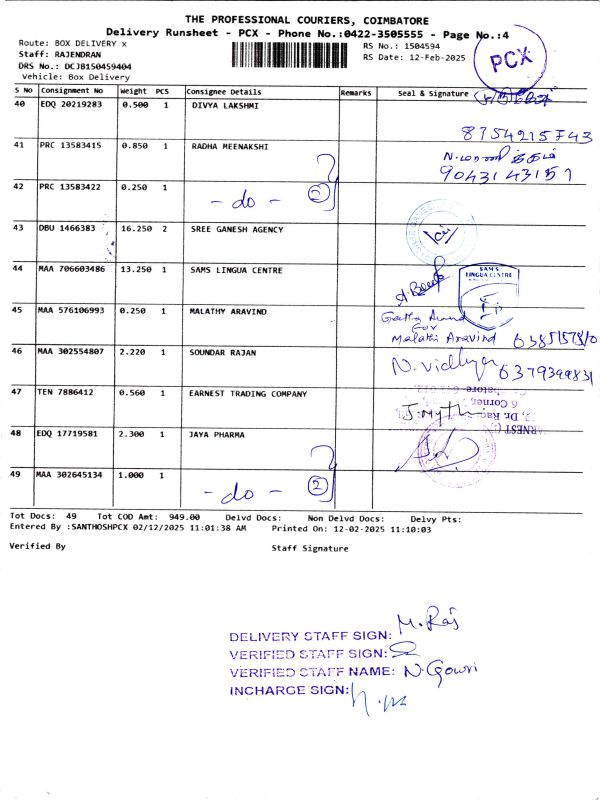 THE PROFESSIONAL COURIERS, COIMBATORE
Delivery Runsheet - PCX - Phone No.:0422-3505555 - Page No.:4
Route: BOX DELIVERY x RS No.: 1504594
Staff: RAJENDRAN RS Date: 12-Feb-2025
DRS No.: DCJB150459404
Vehicle: Box Delivery
PCX
S No Consignment No Weight PCS Consignee Details Remarks Seal & Signature
40 EDQ 20219283 0.500 1 DIVYA LAKSHMI
41 PRC 13583415 0.850 1 RADHA MEENAKSHI
9043143151
42 PRC 13583422 0.250 1 - do - 2
43 DBU 1466383 16.250 2 SREE GANESH AGENCY
44 MAA 706603486 13.250 1 SAMS LINGUA CENTRE
SAM'S
LINGUA CENTRE
45 MAA 576106993 0.250 1 MALATHY ARAVIND
for
Malathi Aravind
46 MAA 302554807 2.220 1 SOUNDAR RAJAN
N. Vidhya 6379399831
47 TEN 7886412 0.560 1 EARNEST TRADING COMPANY
48 EDQ 17719581 2.300 1 JAYA PHARMA
49 MAA 302645134 1.000 1 - do - 2
Tot Docs: 49 Tot COD Amt: 949.00 Delvd Docs: Non Delvd Docs: Delvy Pts:
Entered By :SANTHOSHPCX 02/12/2025 11:01:38 AM Printed On: 12-02-2025 11:10:03
Verified By Staff Signature
DELIVERY STAFF SIGN: M. Raj
VERIFIED STAFF SIGN:
VERIFIED STAFF NAME: N. Gowri
INCHARGE SIGN: